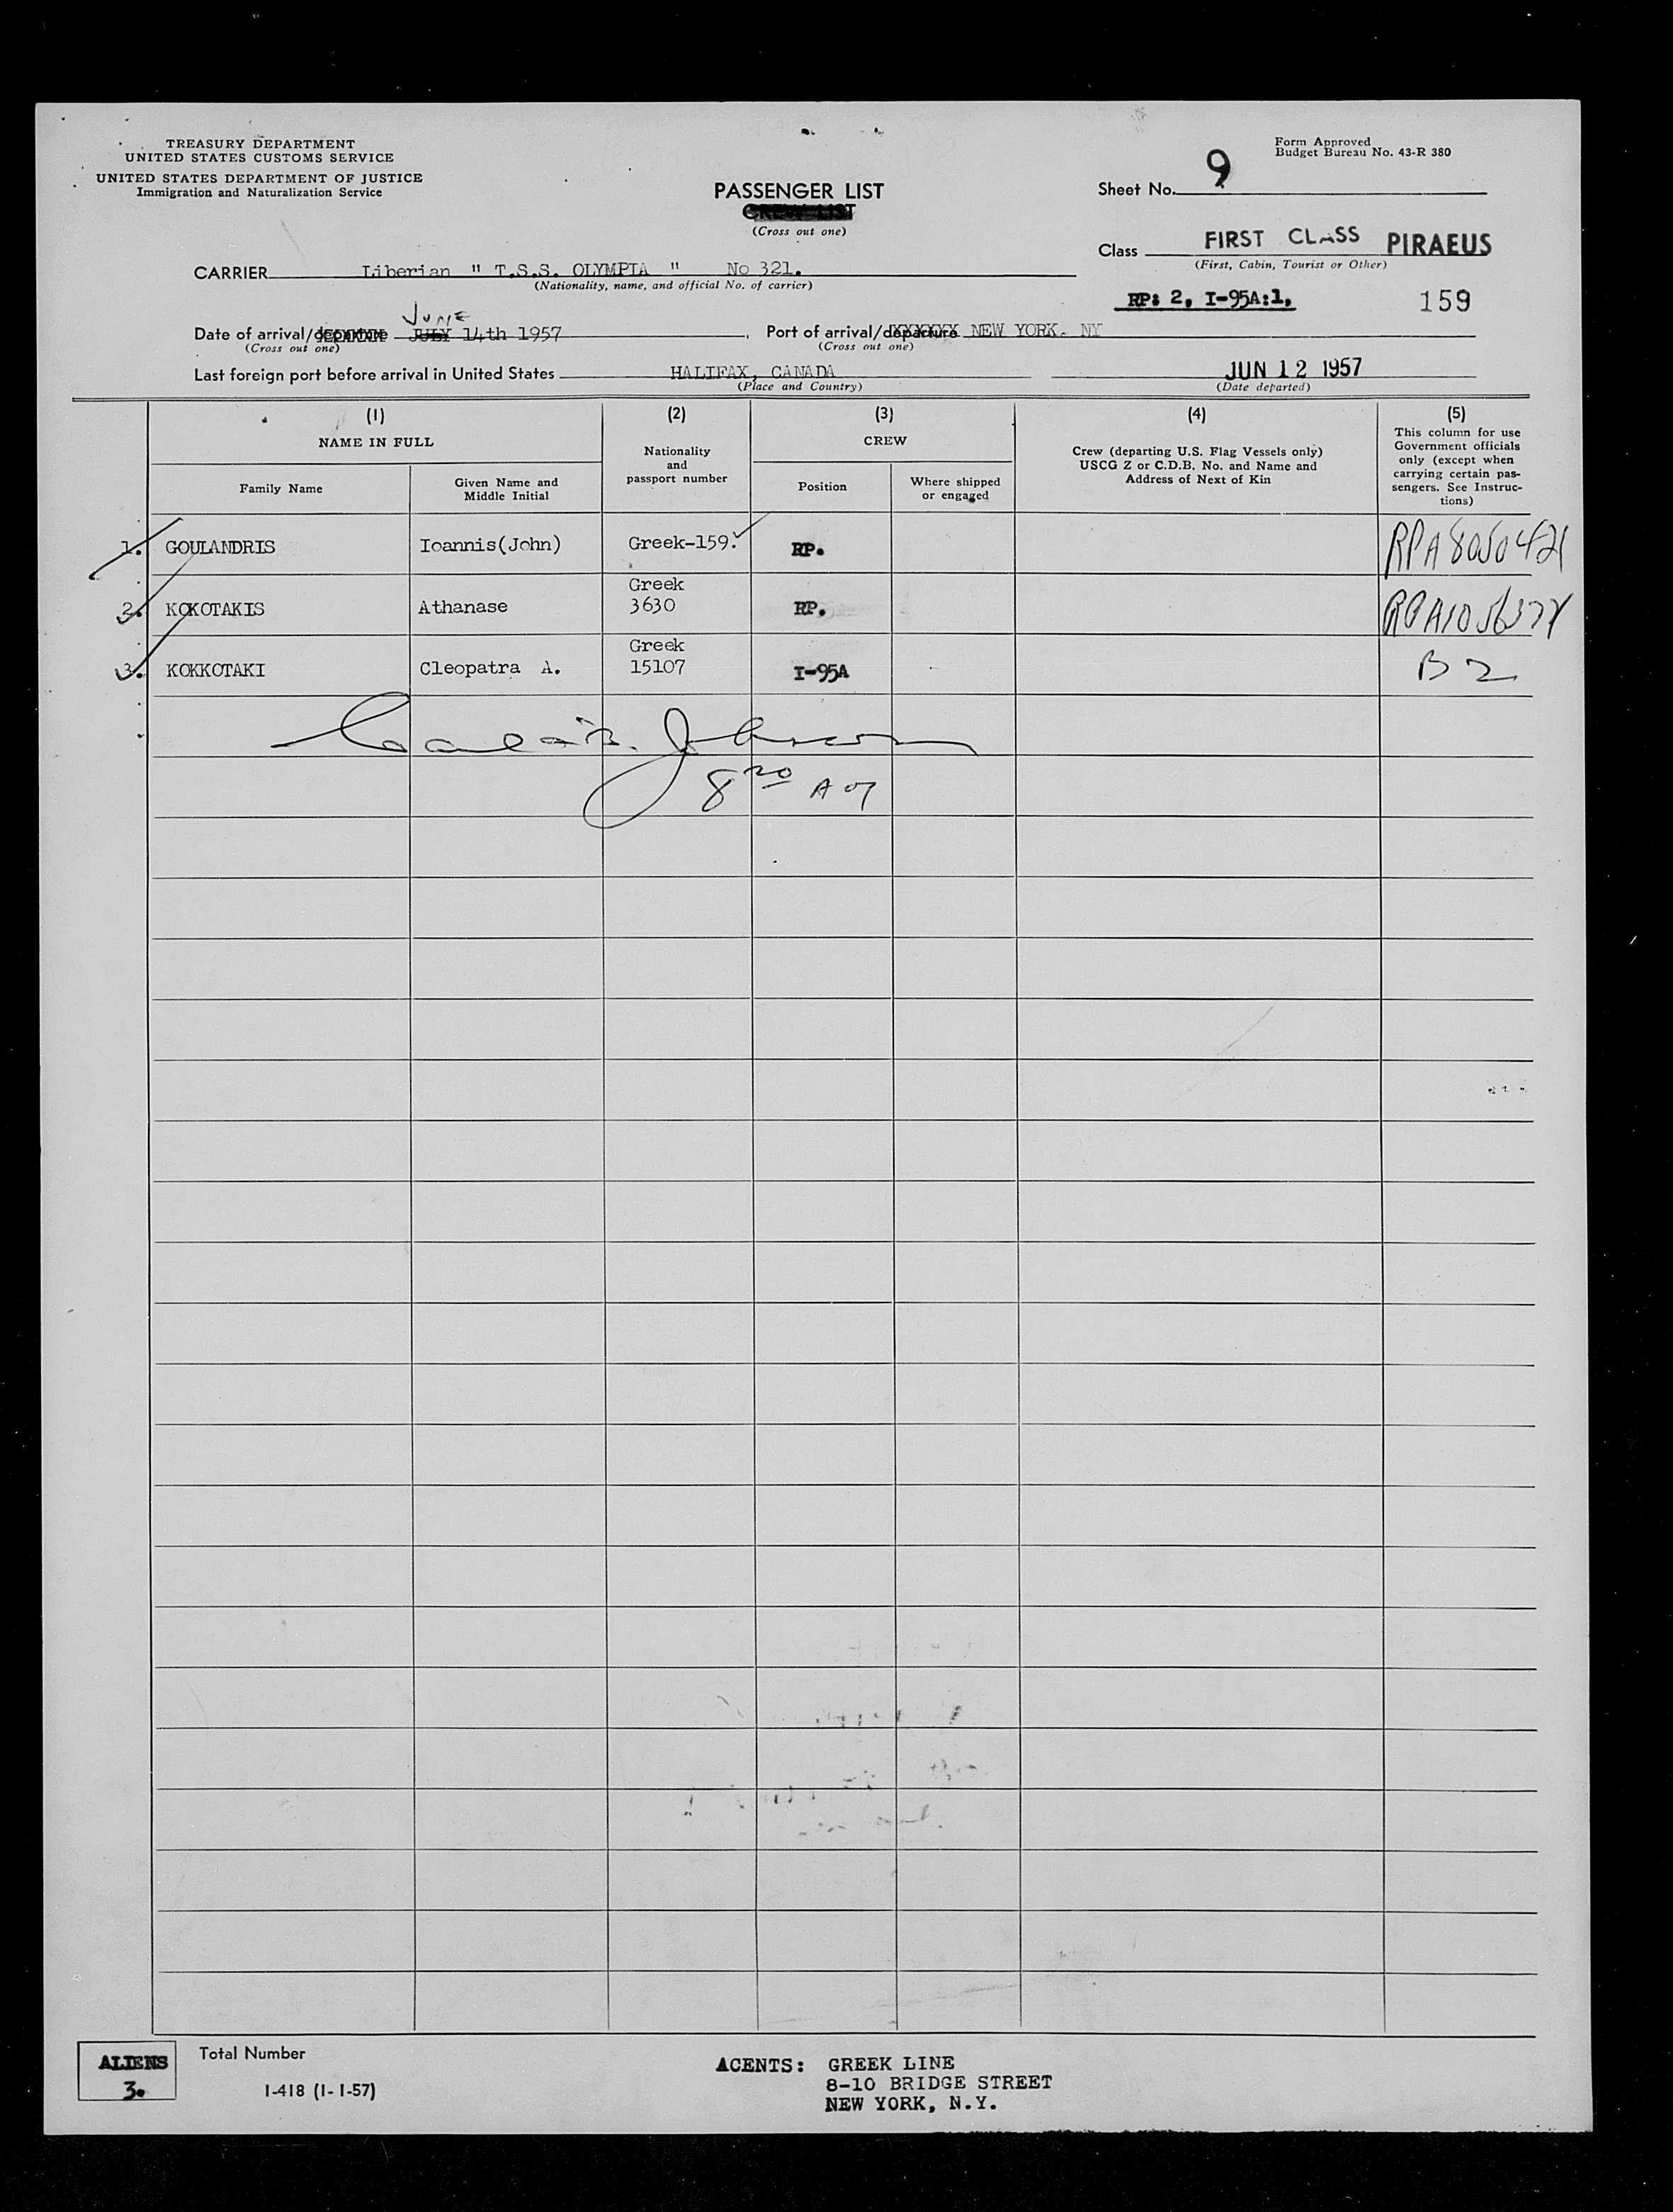 TREASURY DEPARTMENT
UNITED STATES CUSTOMS SERVICE
UNITED STATES DEPARTMENT OF JUSTICE
Immigration and Naturalization Service
Form Approved
Budget Bureau No. 43-R 380
PASSENGER LIST
CREW LIST
(Cross out one)
Sheet No. 9
Class FIRST CLASS PIRAEUS
(First, Cabin, Tourist or Other)
CARRIER Liberian " T.S.S. OLYMPIA " No 321.
(Nationality, name, and official No. of carrier)
RP: 2, I-95A:1, 159
JUNE
Date of arrival/departure JULY 14th 1957, Port of arrival/departure NEW YORK. NY
(Cross out one) (Cross out one)
Last foreign port before arrival in United States HALIFAX, CANADA JUN 12 1957
(Place and Country) (Date departed)
(1) (2) (3) (4) (5)
NAME IN FULL
Family Name
Given Name and
Middle Initial
Nationality
and
passport number
CREW
Position
Where shipped
or engaged
Crew (departing U.S. Flag Vessels only)
USCG Z or C.D.B. No. and Name and
Address of Next of Kin
This column for use
Government officials
only (except when
carrying certain pas-
sengers. See Instruc-
tions)
1. GOULANDRIS Ioannis(John) Greek-159. RP. RPA8050421
Greek
2. KOKOTAKIS Athanase 3630 RP.
Greek
3. KOKKOTAKI Cleopatra A. 15107 I-95A B2
Johnson
8 20 AM
ALIENS
3.
Total Number
I-418 (1-1-57)
AGENTS: GREEK LINE
8-10 BRIDGE STREET
NEW YORK, N.Y.